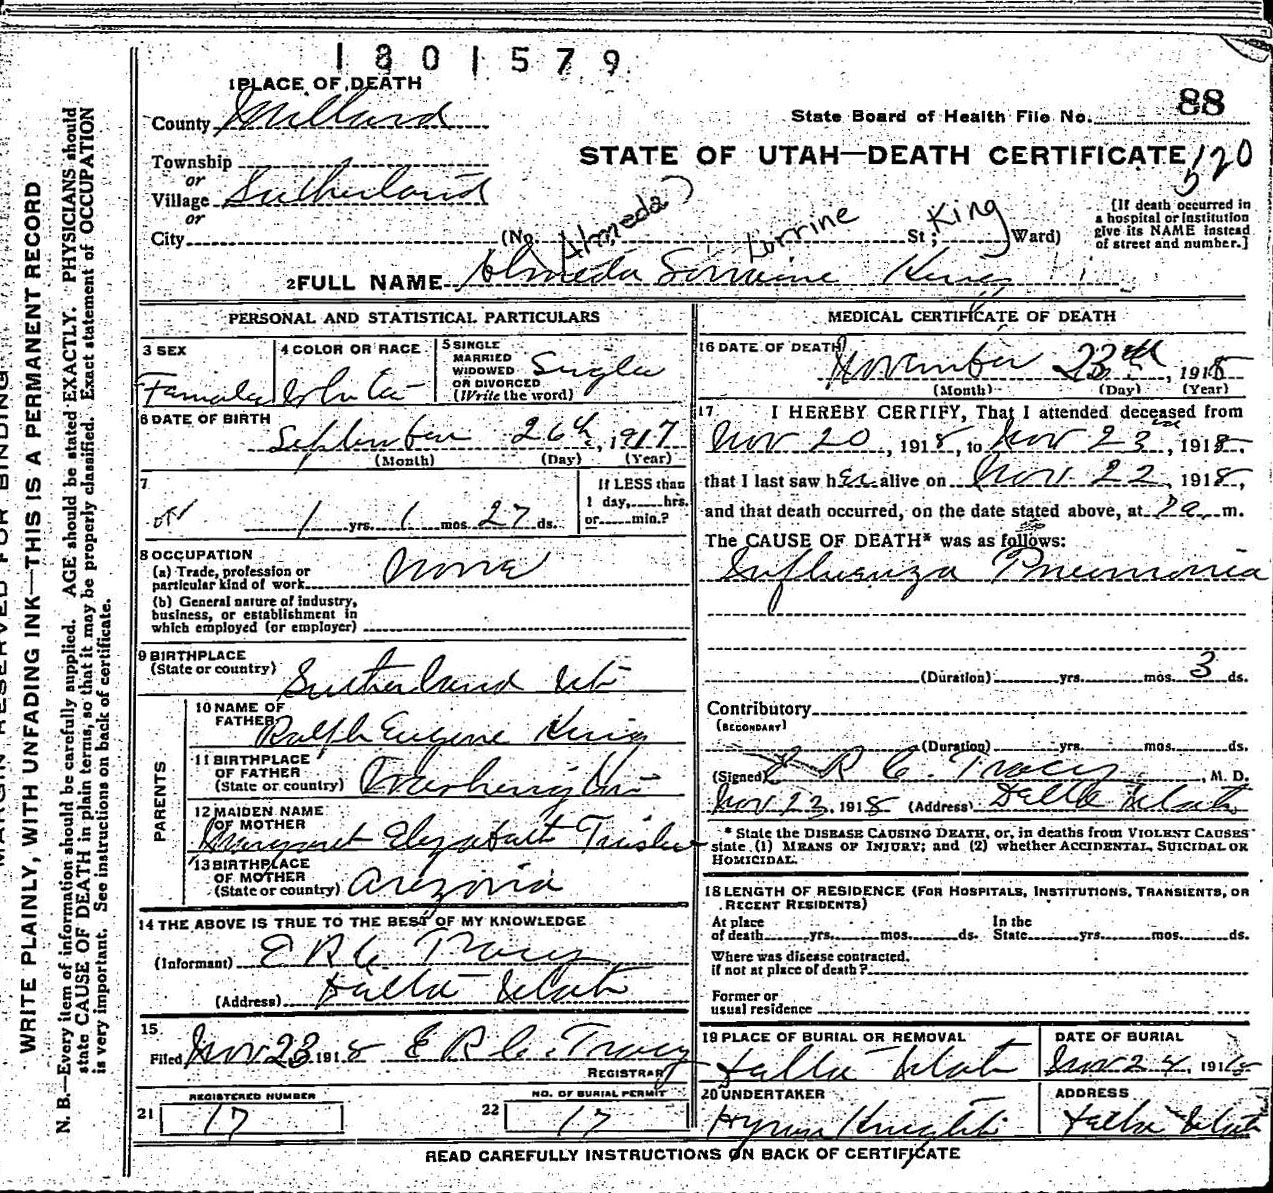 1801579
1 PLACE OF DEATH
County Millard
State Board of Health File No. 88
Township
or
Village Sutherland
or
City
STATE OF UTAH—DEATH CERTIFICATE 120
5
(No. St; Ward)
Almeda Lorrine King
[If death occurred in
a hospital or institution
give its NAME instead
of street and number.]
2 FULL NAME Almeda Lorraine King
PERSONAL AND STATISTICAL PARTICULARS
3 SEX
Famale
4 COLOR OR RACE
White
5 SINGLE
MARRIED
WIDOWED
OR DIVORCED
(Write the word)
Single
6 DATE OF BIRTH
September 26th, 1917
(Month) (Day) (Year)
7
1 yrs. 1 mos. 27 ds.
If LESS than
1 day, hrs.
or min.?
8 OCCUPATION
(a) Trade, profession or
particular kind of work None
(b) General nature of industry,
business, or establishment in
which employed (or employer)
9 BIRTHPLACE
(State or country) Sutherland Ut
PARENTS
10 NAME OF
FATHER Ralph Eugene King
11 BIRTHPLACE
OF FATHER
(State or country) Washington
12 MAIDEN NAME
OF MOTHER
Margaret Elizabeth
13 BIRTHPLACE
OF MOTHER
(State or country) Arizona
14 THE ABOVE IS TRUE TO THE BEST OF MY KNOWLEDGE
(Informant) E R C Tracy
(Address) Delta Utah
15
Filed Nov 23 1918 E R C. Tracy
REGISTRAR
REGISTERED NUMBER
21 17
NO. OF BURIAL PERMIT
22 17
MEDICAL CERTIFICATE OF DEATH
16 DATE OF DEATH
November 23th, 1918
(Month) (Day) (Year)
17 I HEREBY CERTIFY, That I attended deceased from
Nov 20, 1918, to Nov 23, 1918,
that I last saw her alive on Nov. 22, 1918,
and that death occurred, on the date stated above, at 7a m.
The CAUSE OF DEATH* was as follows:
Influenza Pneumonia
(Duration) yrs. mos. 3 ds.
Contributory
(SECONDARY)
(Duration) yrs. mos. ds.
(Signed) E R C. Tracy, M. D.
Nov 23, 1918 (Address) Delta Utah
* State the DISEASE CAUSING DEATH, or, in deaths from VIOLENT CAUSES
state (1) MEANS OF INJURY; and (2) whether ACCIDENTAL, SUICIDAL OR
HOMICIDAL.
18 LENGTH OF RESIDENCE (FOR HOSPITALS, INSTITUTIONS, TRANSIENTS, OR
RECENT RESIDENTS)
At place
of death yrs. mos. ds.
In the
State yrs. mos. ds.
Where was disease contracted.
if not at place of death?
Former or
usual residence
19 PLACE OF BURIAL OR REMOVAL
Delta Utah
DATE OF BURIAL
Nov 24, 1918
20 UNDERTAKER
Hyrum Knight
ADDRESS
Delta Utah
READ CAREFULLY INSTRUCTIONS ON BACK OF CERTIFICATE
MARGIN RESERVED FOR BINDING
WRITE PLAINLY, WITH UNFADING INK—THIS IS A PERMANENT RECORD
N. B.—Every item of information should be carefully supplied. AGE should be stated EXACTLY. PHYSICIANS should
state CAUSE OF DEATH in plain terms, so that it may be properly classified. Exact statement of OCCUPATION
is very important. See instructions on back of certificate.